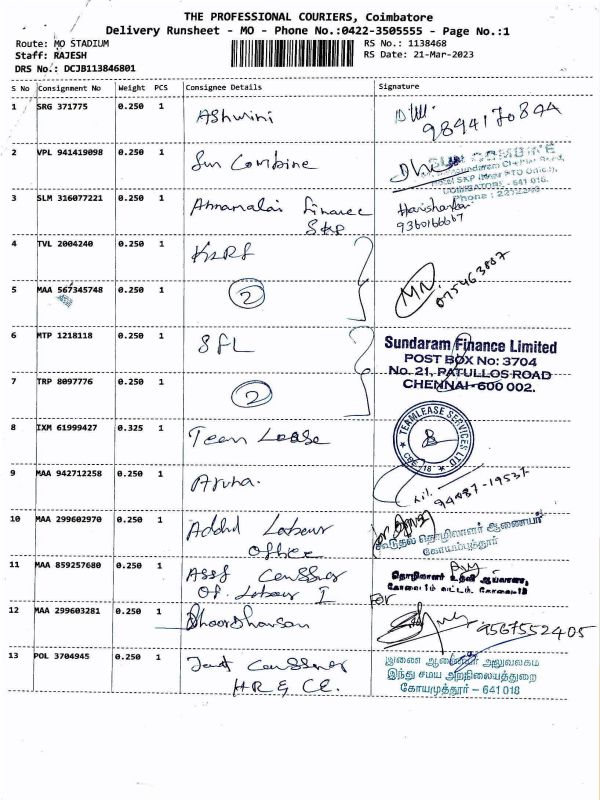 THE PROFESSIONAL COURIERS, Coimbatore
Delivery Runsheet - MO - Phone No.:0422-3505555 - Page No.:1
Route: MO STADIUM
RS No.: 1138468
Staff: RAJESH
RS Date: 21-Mar-2023
DRS No.: DCJB113846801
S No Consignment No Weight PCS Consignee Details Signature
1 SRG 371775 0.250 1 Ashwini
2 VPL 941419098 0.250 1 Sun Combine
3 SLM 316077221 0.250 1 Annamalai Finance
SKP
Harishankar
9360166667
4 TVL 2004240 0.250 1
5 MAA 567345748 0.250 1 2
6 MTP 1218118 0.250 1 SFL
Sundaram Finance Limited
POST BOX No: 3704
No. 21, PATULLOS ROAD
CHENNAI-600 002.
7 TRP 8097776 0.250 1 2
8 IXM 61999427 0.325 1 Team Lease
TEAMLEASE SERVICES LTD
9 MAA 942712258 0.250 1 Aruna.
94487-19537
10 MAA 299602970 0.250 1 Addnl Labour
Office
கூடுதல் தொழிலாளர் ஆணையர்
கோயம்புத்தூர்
11 MAA 859257680 0.250 1
Of. Labour I
For
12 MAA 299603281 0.250 1
9567552405
13 POL 3704945 0.250 1
HR & CE.
இணை ஆணையர் அலுவலகம்
இந்து சமய அறநிலையத்துறை
கோயமுத்தூர் - 641 018